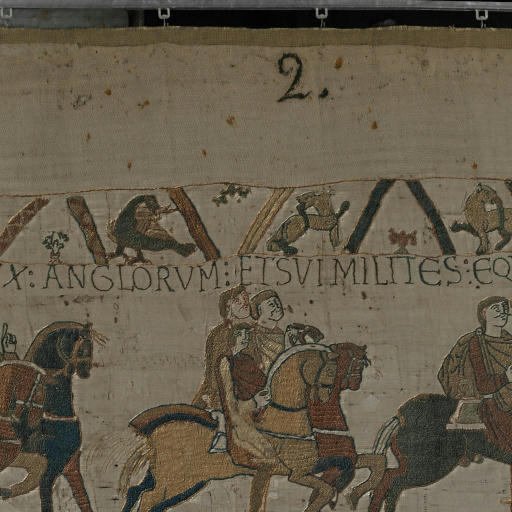 2.
X: ANGLORVM: ETSVI MILITES: EQ